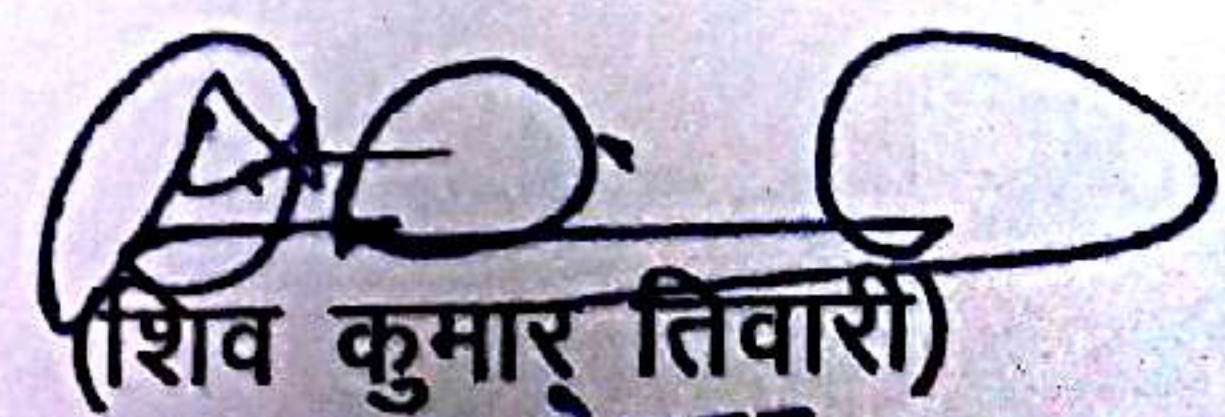 (शिव कुमार तिवारी)